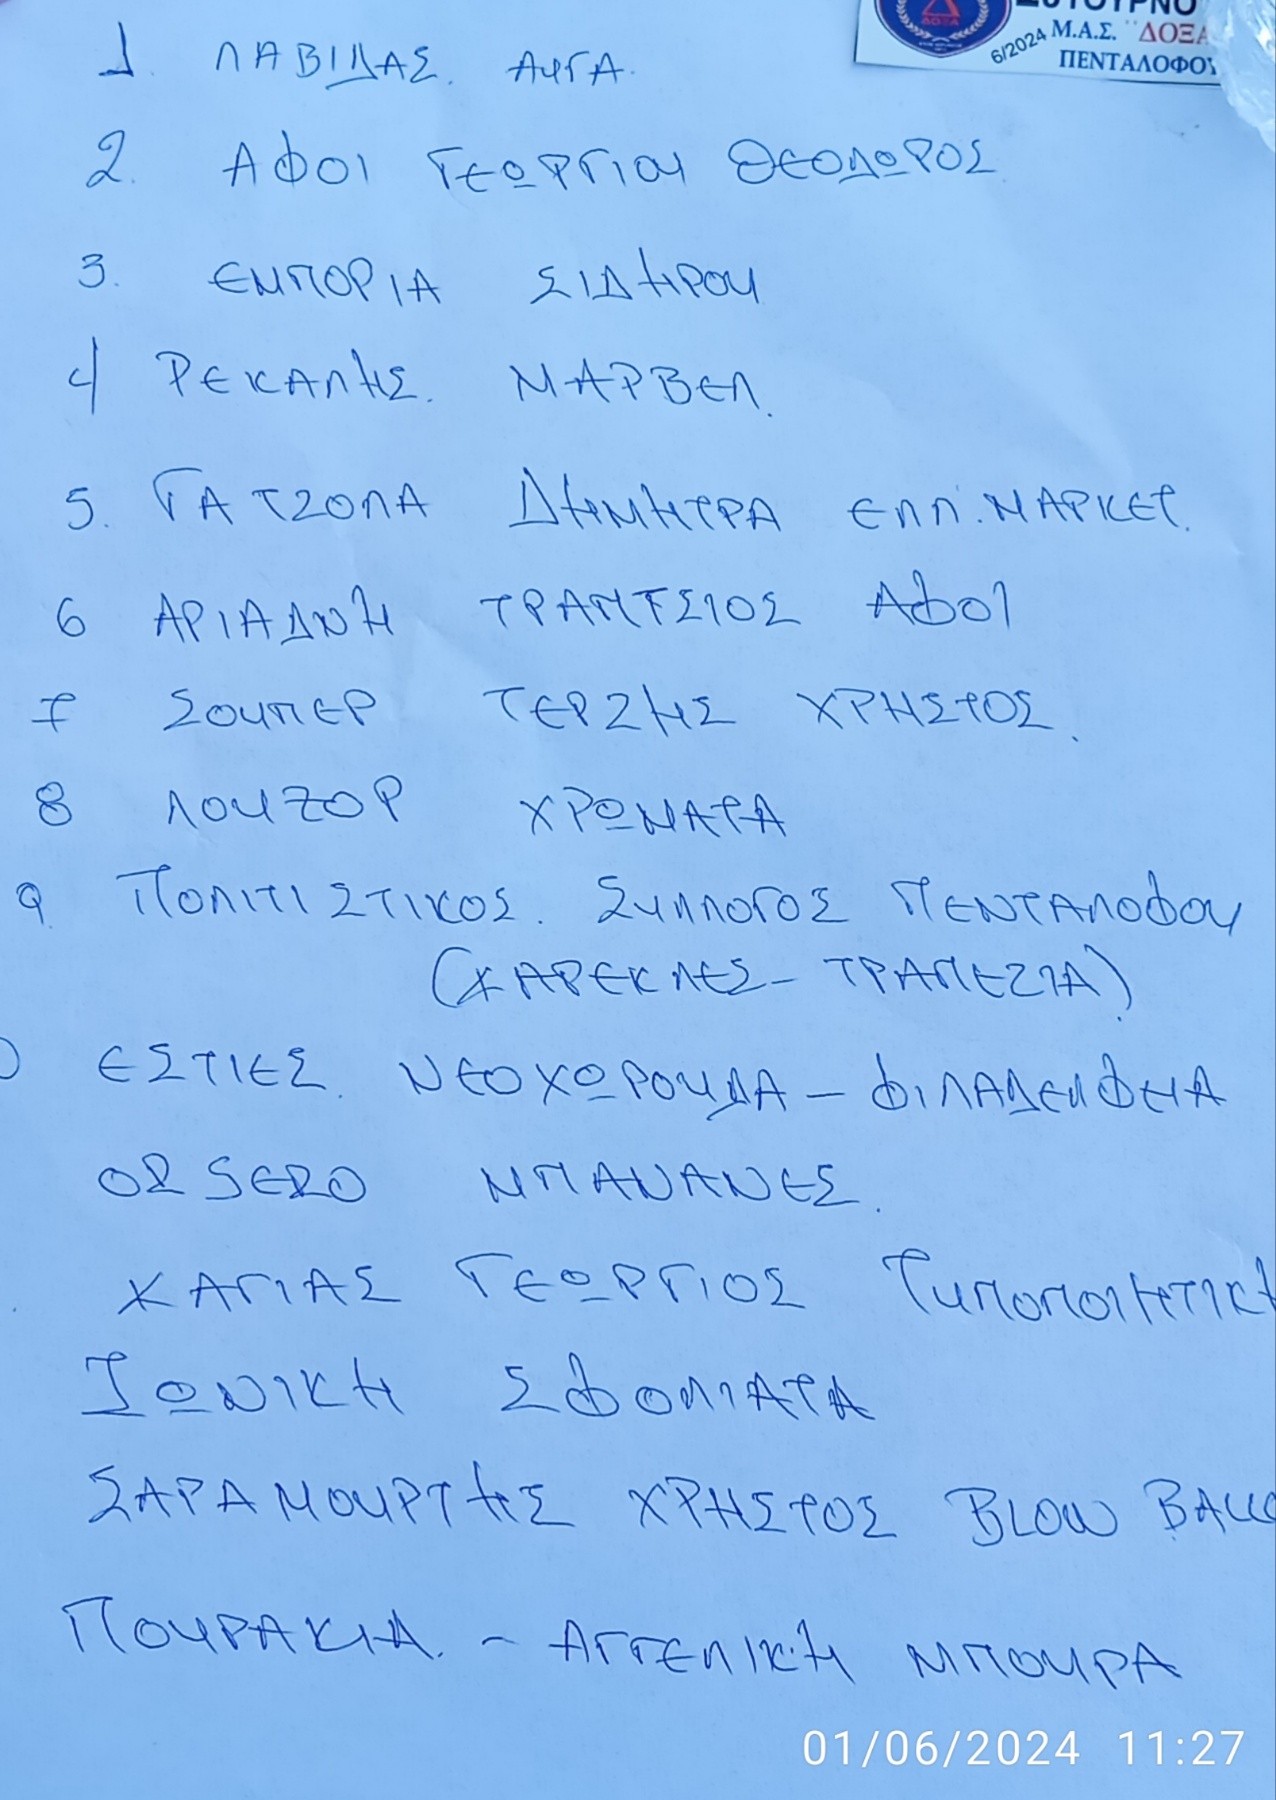 ΔΟΞΑ
6/2024 Μ.Α.Σ. "ΔΟΞΑ
ΠΕΝΤΑΛΟΦΟΥ
1. ΛΑΒΙΔΑΣ. ΑΥΓΑ.
2. ΑΦΟΙ ΓΕΩΡΓΙΟΥ ΘΕΟΔΩΡΟΣ
3. ΕΜΠΟΡΙΑ ΣΙΔΗΡΟΥ
4 ΡΕΚΑΛΗΣ. ΜΑΡΒΕΛ.
5. ΓΑΤΖΟΛΑ ΔΗΜΗΤΡΑ ΕΛΛ. ΜΑΡΚΕΤ.
6 ΑΡΙΑΔΝΗ ΤΡΑΠΤΣΙΟΣ ΑΦΟΙ
7 ΣΟΥΠΕΡ ΤΕΡΖΗΣ ΧΡΗΣΤΟΣ.
8 ΛΟΥΖΟΡ ΧΡΩΜΑΤΑ
9 ΠΟΛΙΤΙΣΤΙΚΟΣ. ΣΥΛΛΟΓΟΣ ΠΕΝΤΑΛΟΦΟΥ
(ΧΑΡΕΚΛΕΣ - ΤΡΑΠΕΖΙΑ)
0 ΕΣΤΙΕΣ. ΝΕΟΧΩΡΟΥΔΑ - ΦΙΛΑΔΕΛΦΕΙΑ
ORSERO ΜΠΑΝΑΝΕΣ.
ΧΑΓΙΑΣ ΓΕΩΡΓΙΟΣ ΤΥΠΟΠΟΙΗΤΙΚΗ
ΙΩΝΙΚΗ ΣΦΟΛΙΑΤΑ
ΣΑΡΑΜΟΥΡΤΗΣ ΧΡΗΣΤΟΣ BLOW BALLO
ΠΟΥΡΑΚΙΑ. - ΑΓΓΕΛΙΚΗ ΜΠΟΥΡΑ
01/06/2024 11:27